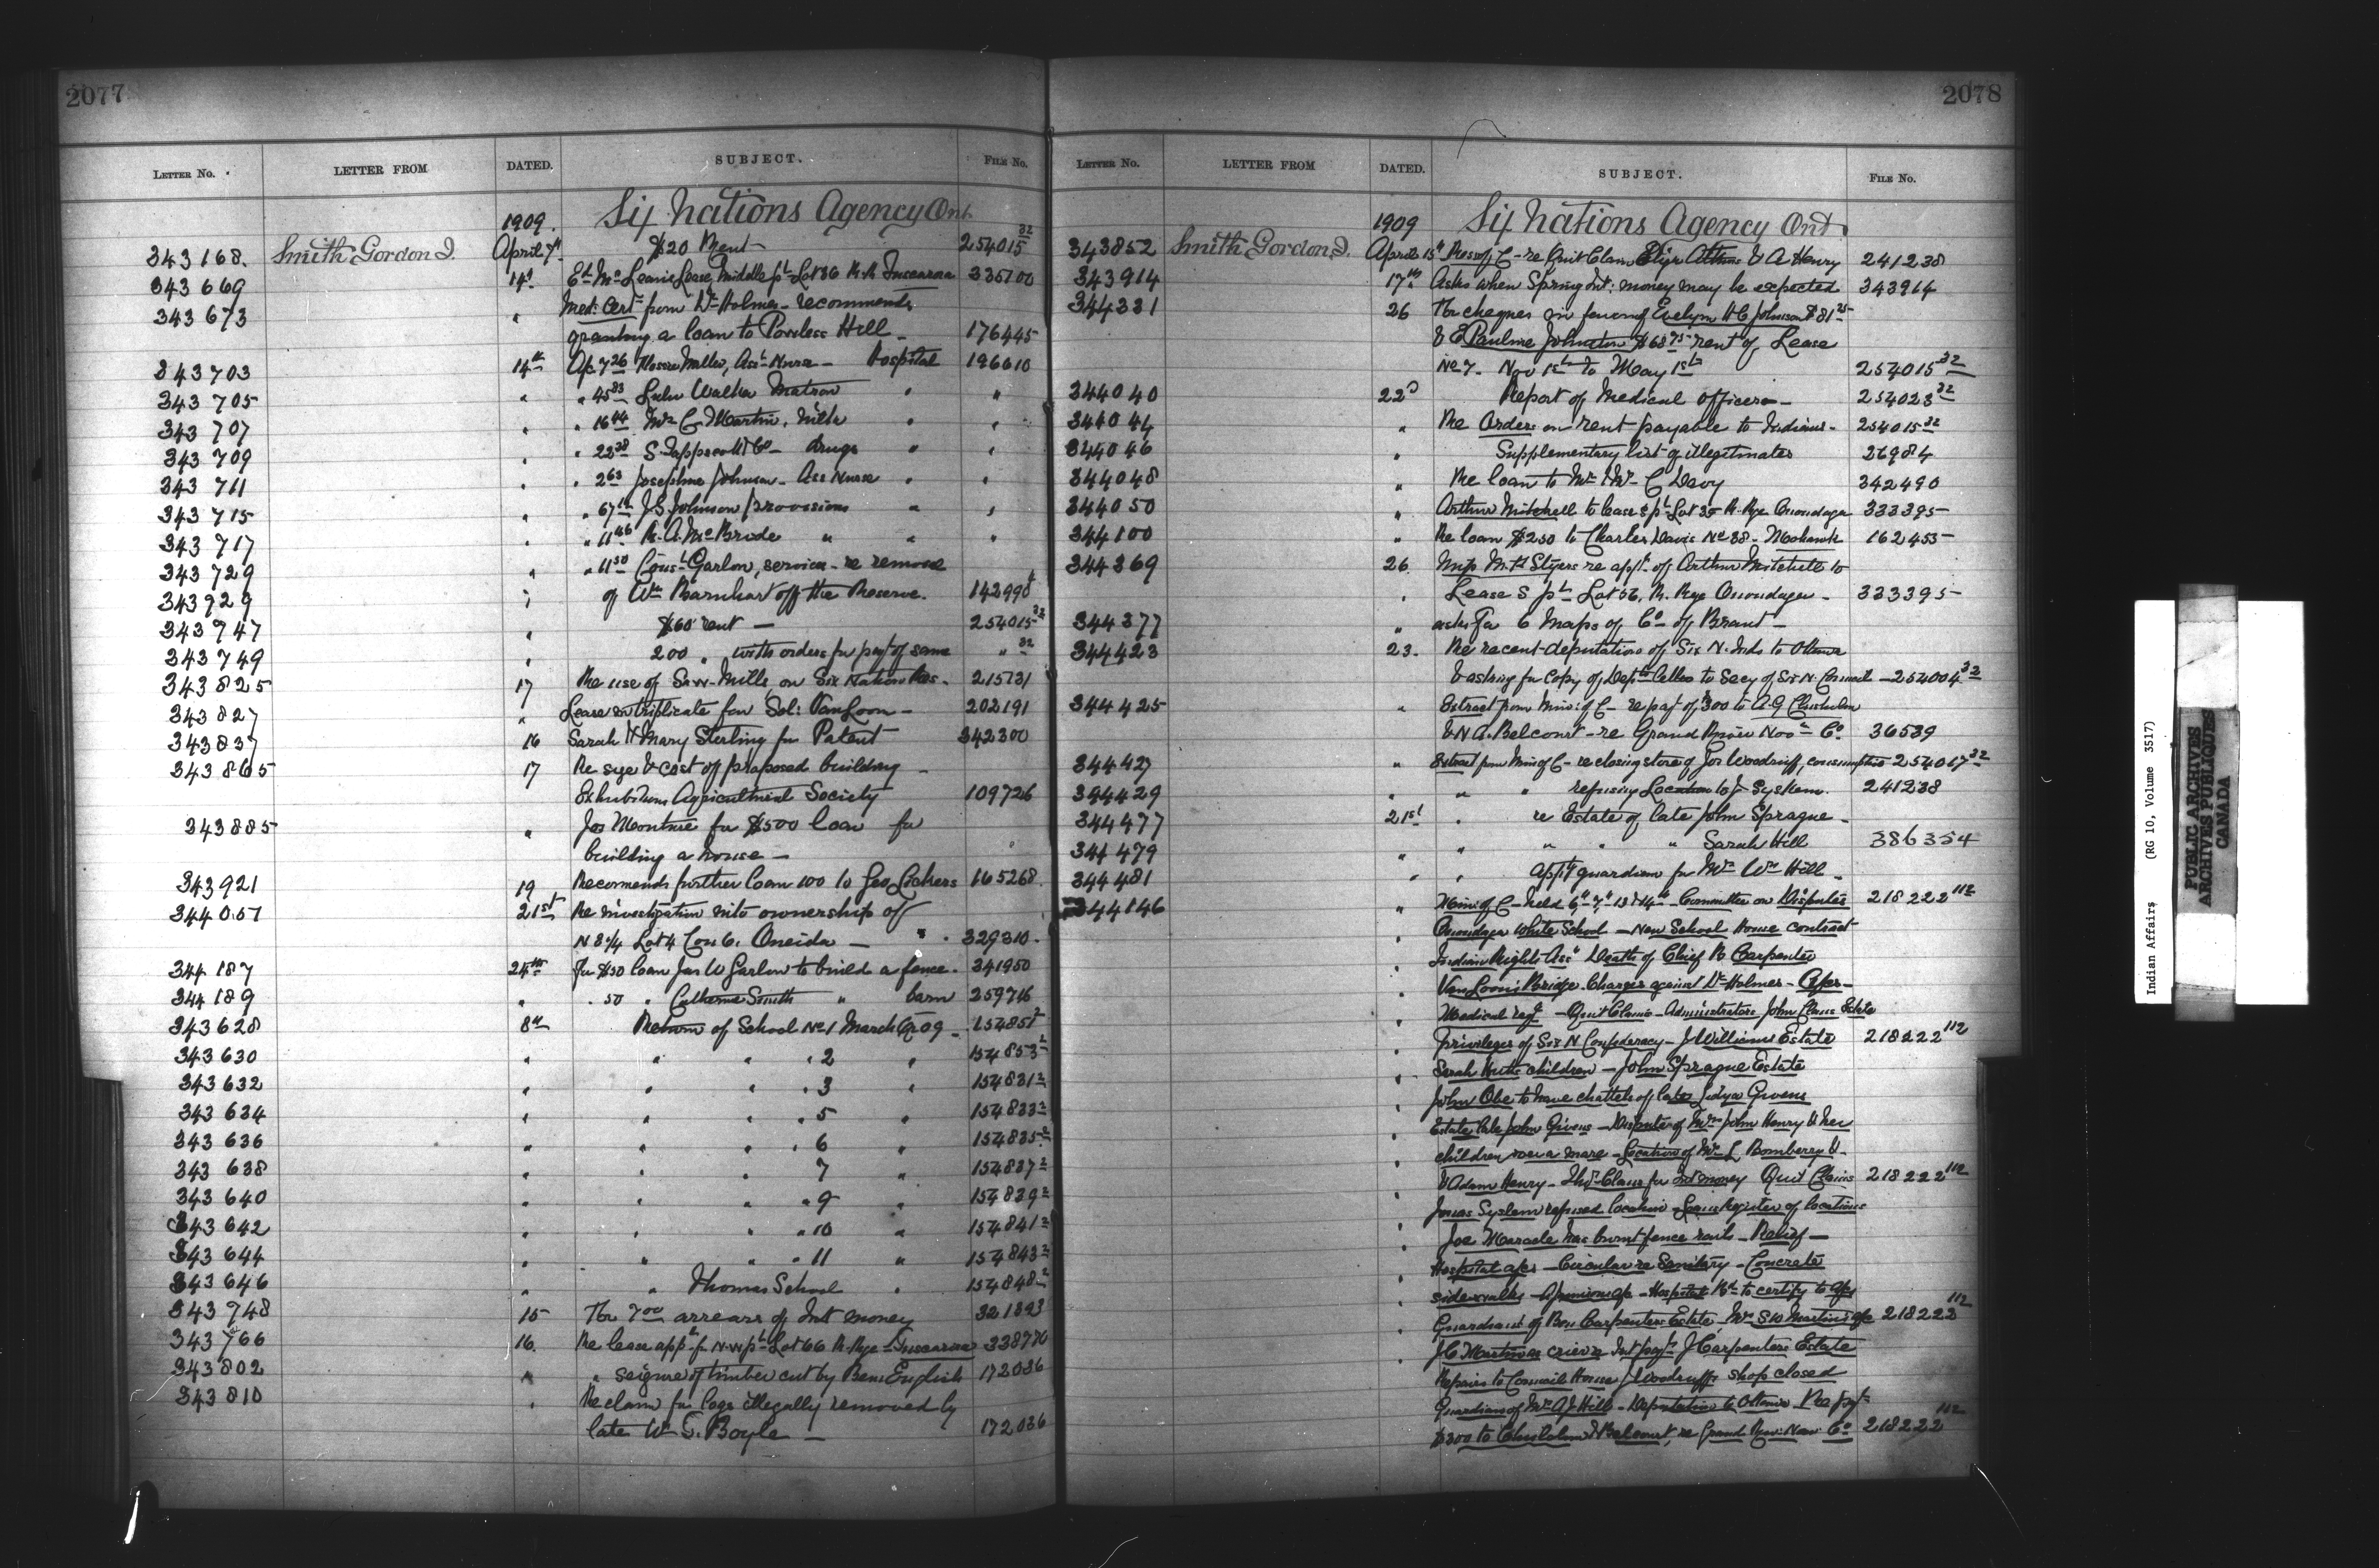 2077
LETTER No. LETTER FROM DATED. SUBJECT. FILE No.
1909. Six Nations Agency Ont.
343168. Smith Gordon J. April 7th $20 Rent 254015 32
343669 14th Ed. Mc Lease, Middle pt Lot 36 R.R. Tuscarora 335700
343673 " Med. Cert. from Dr Holmes recommends
granting a loan to Powless Hill 176445
343703 14th Ap. 7 26 Miller, Asst Nurse Hospital 196610
343705 " " 45 83 Lulu Walker Matron " "
343707 " " 16 44 Mrs C. Martin, milk " "
343709 " " 22 38 S. Tapscott & Co drugs " "
343711 " " 2 63 Josephine Johnson Ass Nurse " "
343715 " " 67 J.S. Johnson provisions " "
343717 " " 11 46 R.A. McBride " " "
343729 " " 11 50 Const Garlow, services re removal
343929 " of Wm Barnhart off the Reserve. 142990
343747 " $60 rent 254015 32
343749 " 200 " with orders for payt of same " 32
343825 17 Re use of Saw Mills on Six Nation Res. 215731
343827 " Lease in triplicate for Sol: VanLoon 202191
343837 16 Sarah & Mary Sterling for Patent 342300
343865 17 Re size & cost of proposed building
Exhibition Agricultural Society 109726
343885 " Jos Monture for $500 loan for
building a house
343921 19 Recommends further loan 100 to Geo Lickers 165268
344057 21st Re investigation into ownership of
N 3/4 Lot 4 Con 6. Oneida 329310
344187 24th For $50 loan Jas W Garlow to build a fence. 341950
344189 " " 50 " Catherine Smith " barn 259716
343628 8th Return of School No 1 March Qr 09 154851 2
343630 " " " " 2 " 154853 2
343632 " " " " 3 " 154831 2
343634 " " " " 5 " 154833 2
343636 " " " " 6 " 154835 2
343638 " " " " 7 " 154837 2
343640 " " " " 9 " 154839 2
343642 " " " " 10 " 154841 2
343644 " " " " 11 " 154843 2
343646 " " Thomas School " 154848 2
343748 15 7 00 arrears of Int money 321393
343766 16. Re lease appn for N.W pt Lot 66 R. Rge Tuscarora 338770
343802 " " seizure of timber cut by Benj English 172036
343810 " Re claim for logs illegally removed by
late Wm T. Boyle 172036
2078
LETTER No. LETTER FROM DATED. SUBJECT. FILE No.
1909 Six Nations Agency Ont.
343852 Smith Gordon J. April 15th Res of C re Quit Claim & A Henry 241238
343914 17th Asks when Spring Int: money may be expected 343914
344331 26 cheques in favour of Evelyn H C Johnson $81 25
& E Pauline Johnson $68 75 rent of Lease
No 7 Nov 1st to May 1st 254015 32
344040 22d Report of Medical officers 254023 32
344044 " Re Orders on rent payable to Indians 254015 32
344046 " Supplementary list of illegitimates 26984
344048 " Re loan to Mr & Mrs C Davy 342490
344050 " Arthur Mitchell to lease S pt Lot 35 R. Rge Onondaga 333395
344100 " Re loan $250 to Charles Davis No 38 Mohawk 162455
344369 26. Miss M. Styers re appn of Arthur Mitchell to
" Lease S pt Lot 36, R. Rge Onondaga 333395
344377 " asks for 6 Maps of Co of Brant
344423 23. Re recent deputation of Six N. Inds to Ottawa
& asking for copy of Dept letter to Secy of Six N. Council 254004 32
344425 " Extract from Min: of C re payt of $300 to A.G Chisholm
& N.A. Belcourt re Grand River Navn Co. 36539
344427 " Extract from Min of C re closing store of Jos Woodruff, consumptive 254017 32
344429 " " " refusing Location to J- System. 241238
344477 21st " re Estate of late John Sprague
344479 " " " " Sarah Hill 386354
344481 " " Appt guardian for Mrs Wm Hill
344146 " Min: of C held 6th 7th 13 & 14th Committee on Disputes 218222 112
" Onondaga White School New School House contract
" Indian Rights Assn Death of Chief R Carpenter
" VanLoon's Bridge Charges against Dr Holmes
" Medical Quit Claims Administrators John Claus Estate
" Privileges of Six N Confederacy J Williams Estate 218222 112
" Sarah children John Sprague Estate
" John Obe to have chattels of late Lidya Givens
" Estate late John Givens Dispute of Mrs John Henry & her
" children over a mare Location of Mrs L Bomberry &
" & Adam Henry Claus for Int money Quit Claims 218222 112
" Jonas System refused location Register of locations
" Joe Maracle has burnt fence rails Relief
" Hospital a/cs Circular re Sanitary Concrete
" sidewalks Hospital Bd to certify to a/cs
" Guardians of Ben Carpenters Estate, Mrs S W Martins a/c 218222 112
" J.C. Martin as crier J Carpenters Estate
" Repairs to Council House J Woodruffs shop closed
" Guardian of Mrs A.J. Hill Deputation to Ottawa Re payt
" $300 to Chisholm & Belcourt, re Grand Riv: Nav: Co 218222 112
Indian Affairs (RG 10, Volume 3517)
PUBLIC ARCHIVES
ARCHIVES PUBLIQUES
CANADA